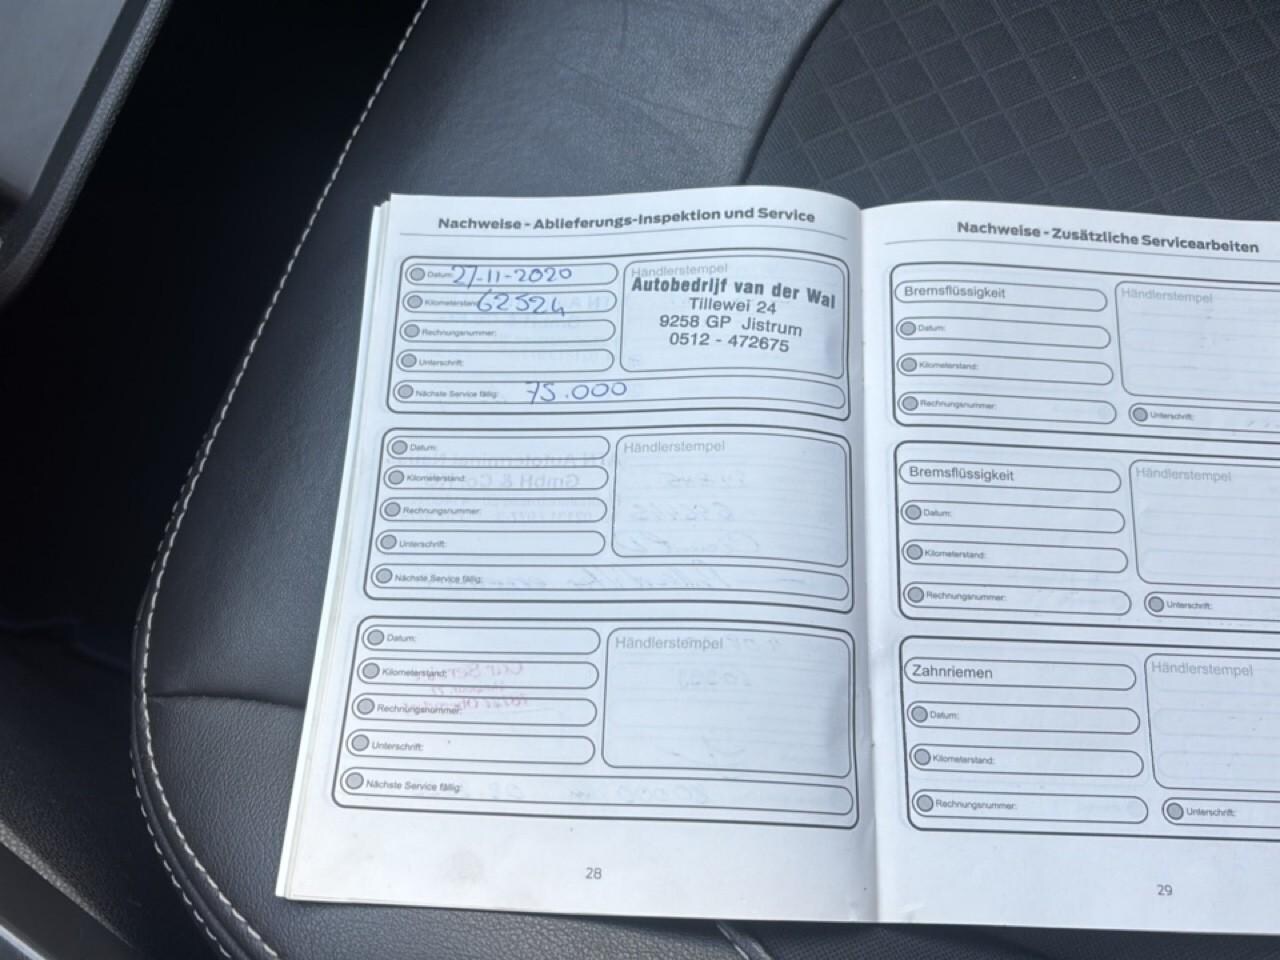 Nachweise - Ablieferungs-Inspektion und Service
Datum: 27-11-2020
Kilometerstand: 62524
Rechnungsnummer:
Unterschrift:
Nächste Service fällig: 75.000
Händlerstempel
Autobedrijf van der Wal
Tillewei 24
9258 GP Jistrum
0512 - 472675
Datum:
Kilometerstand:
Rechnungsnummer:
Unterschrift:
Nächste Service fällig:
Händlerstempel
Datum:
Kilometerstand:
Rechnungsnummer:
Unterschrift:
Nächste Service fällig:
Händlerstempel
28
Nachweise - Zusätzliche Servicearbeiten
Bremsflüssigkeit
Datum:
Kilometerstand:
Rechnungsnummer:
Unterschrift:
Händlerstempel
Bremsflüssigkeit
Datum:
Kilometerstand:
Rechnungsnummer:
Unterschrift:
Händlerstempel
Zahnriemen
Datum:
Kilometerstand:
Rechnungsnummer:
Unterschrift:
Händlerstempel
29